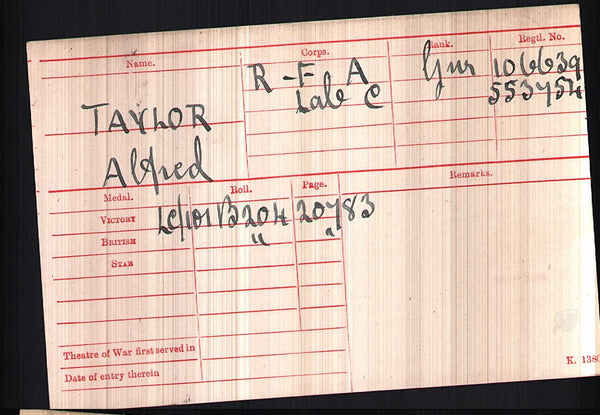 Name.
Corps.
Rank.
Regtl. No.
R-F A
Gnr
106639
Lab C
553754
TAYLOR
Alfred
Medal.
Roll.
Page.
Remarks.
VICTORY
LC/101B204
20783
BRITISH
"
"
STAR
Theatre of War first served in
Date of entry therein
K. 1380